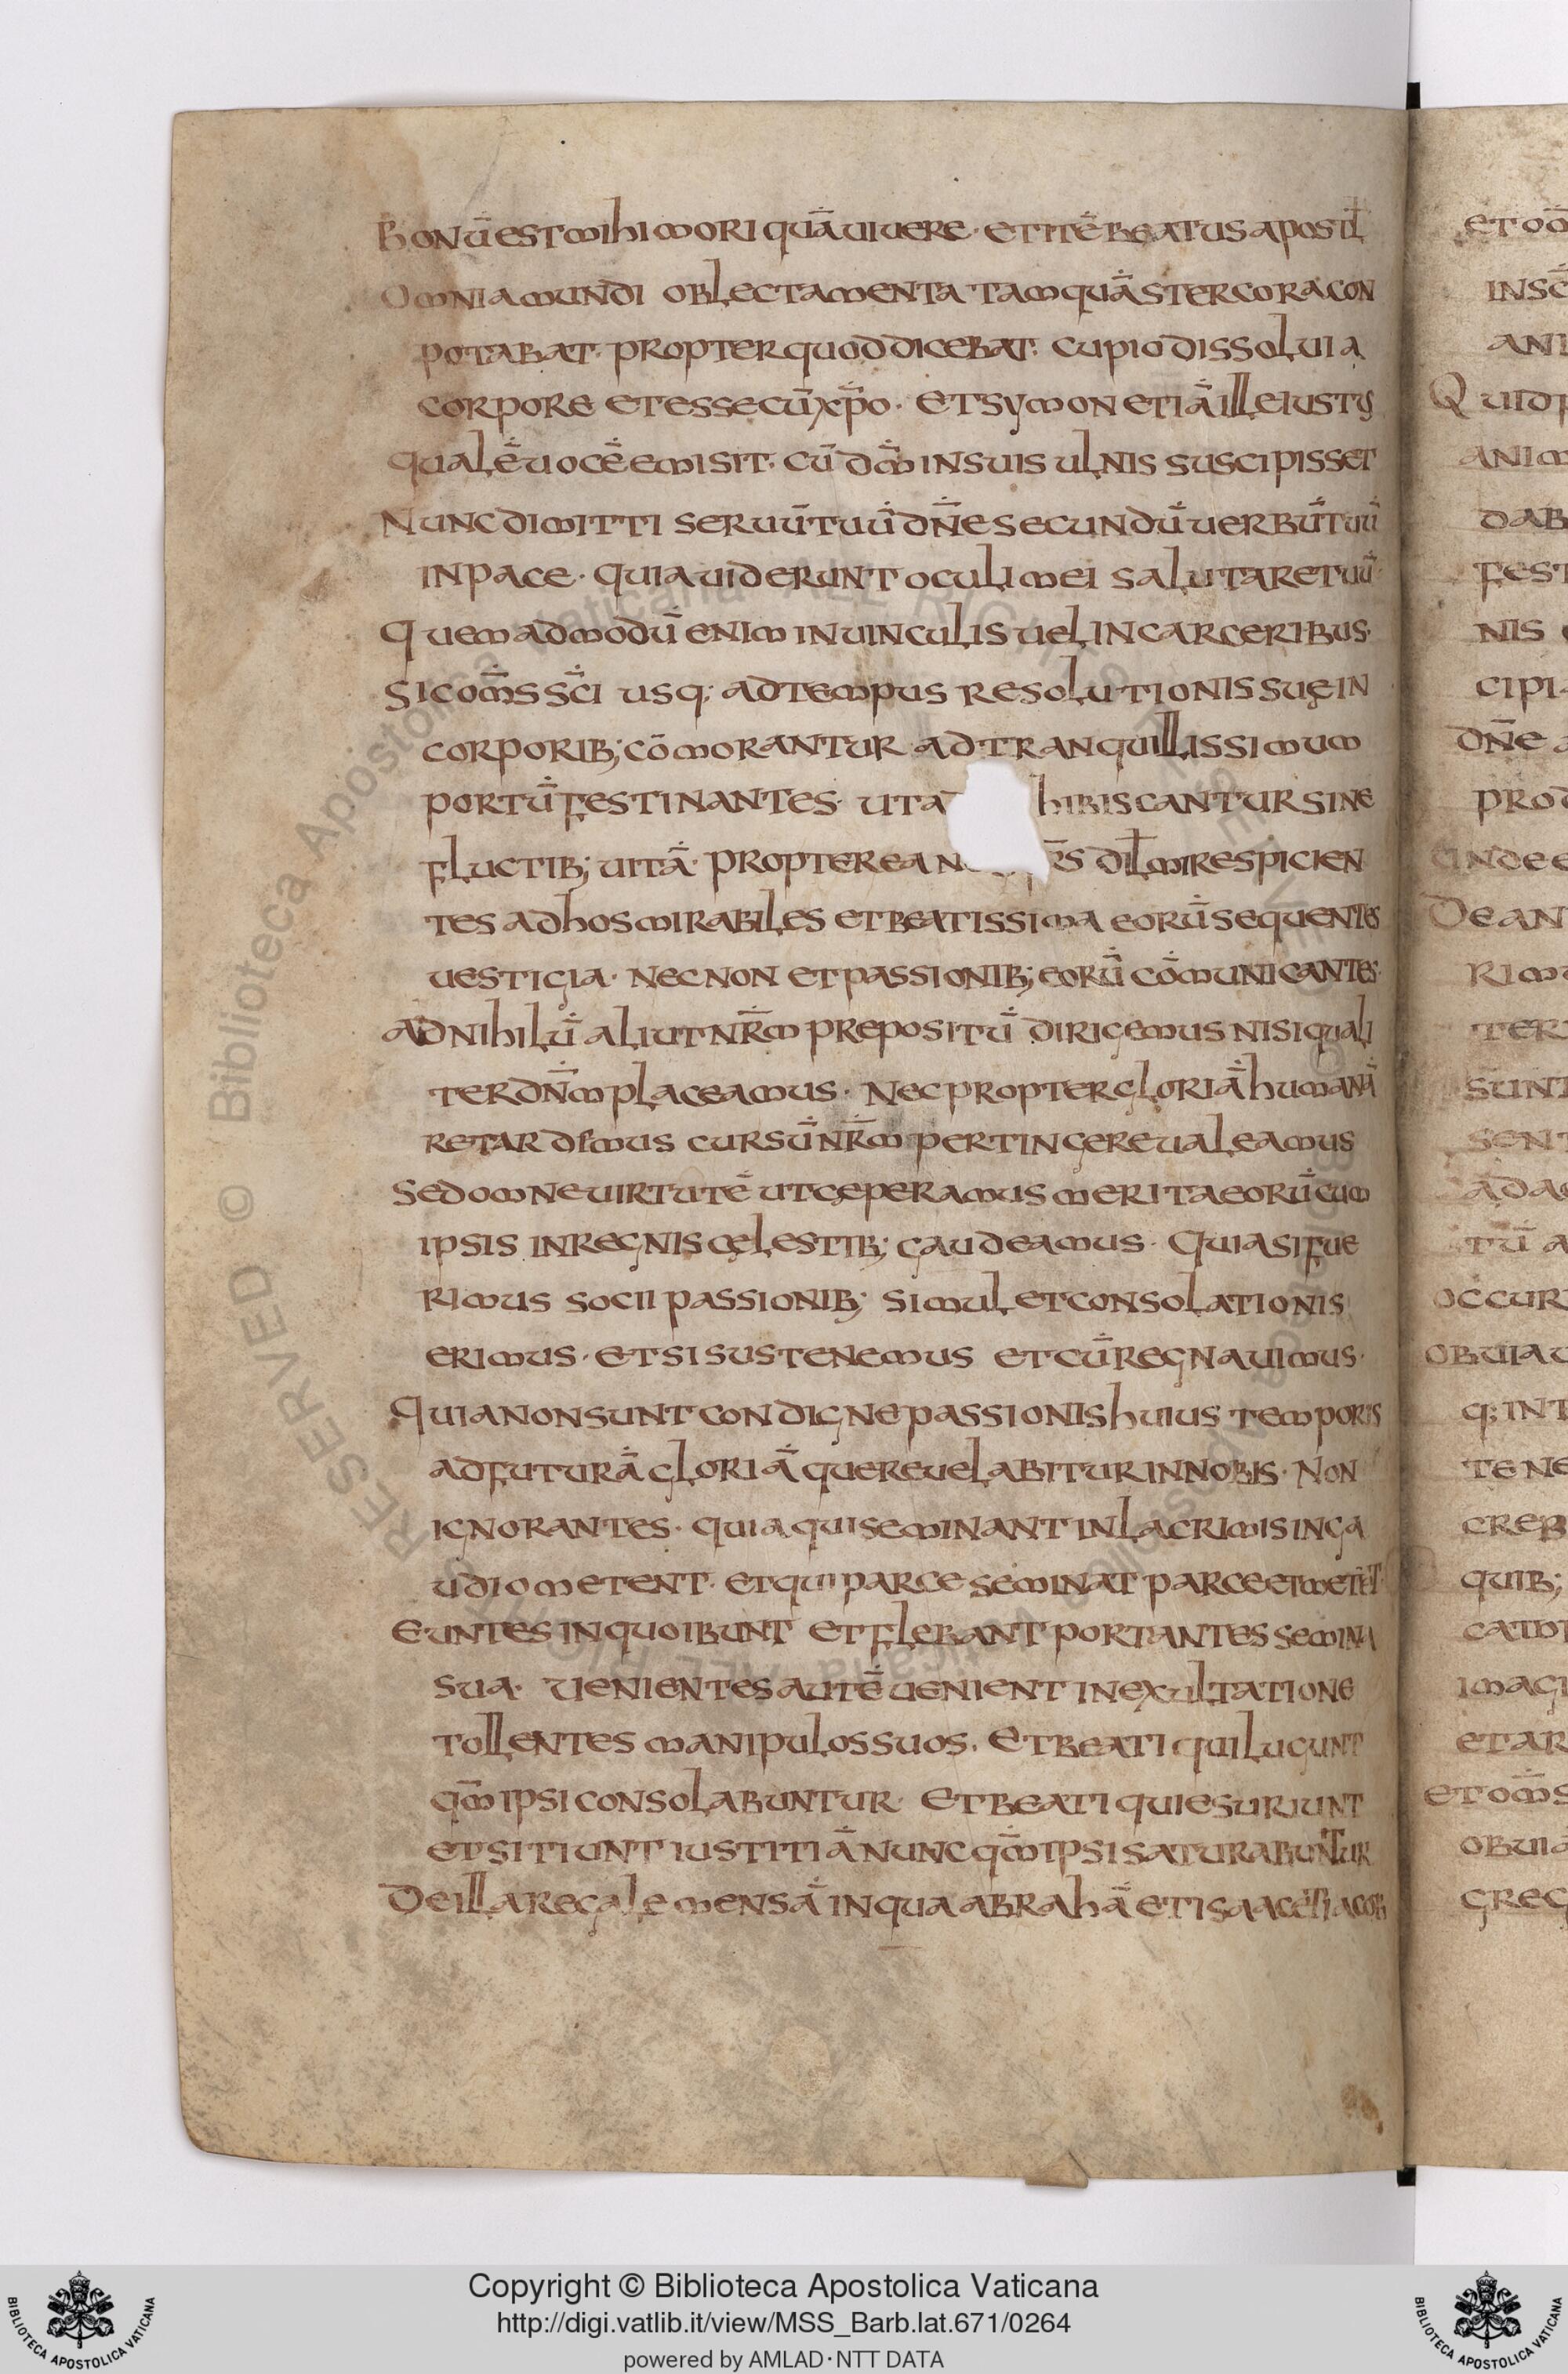 Bonū est mihi mori quā uiuere · et itē beatus apostł
Omnia mundi oblectamenta tamquā stercora con
potabat · propter quod dicebat · cupio dissolui a
corpore et esse cū xp̄o · et symon etiā ille iustus
qualē uocē emisit · cū dōm in suis ulnis suscipisset
Nunc dimitti seruū tuū dn̄e secundū uerbū tuū
in pace · quia uiderunt oculi mei salutare tuū ·
Quemadmodū enim in uinculis uel in carceribus ·
Sic om̄s sc̄i usq; ad tempus resolutionis suę in
corporib; cōmorantur ad tranquillissimum
portū festinantes · ut a hibiscantur sine
fluctib; uitā · propterea r̄s diłmi respicien
tes ad hos mirabiles et beatissima eorū sequentes
uesticia · necnon et passionib; eorū cōmunicantes ·
Ad nihilū aliut nr̄m prepositū dirigemus nisi quali
ter dn̄m placeamus · Nec propter gloriā humanā
retardimus cursū nr̄m pertingere ualeamus
Sed omne uirtutē ut ceperamus merita eorū cum
ipsis in regnis cęlestib; gaudeamus · Quia si fue
rimus socii passionib; simul et consolationis
erimus · et si sustenemus et cū regnauimus ·
Quia non sunt condigne passionis huius temporis
ad futurā gloriā que reuelabitur in nobis · Non
ignorantes · quia qui seminant in lacrimis in ga
udio metent · et qui parce seminat parce et metet
Euntes inquo ibunt et flebant portantes semina
sua · Uenientes autē uenient in exultatione
tollentes manipulos suos · Et beati qui lugunt
qm̄ ipsi consolabuntur · Et beati qui esuriunt
et sitiunt iustitiā nunc qm̄ ipsi saturabuntur
De illa regale mensā in qua abrahā et isaac et iacob
Copyright © Biblioteca Apostolica Vaticana
http://digi.vatlib.it/view/MSS_Barb.lat.671/0264
powered by AMLAD·NTT DATA